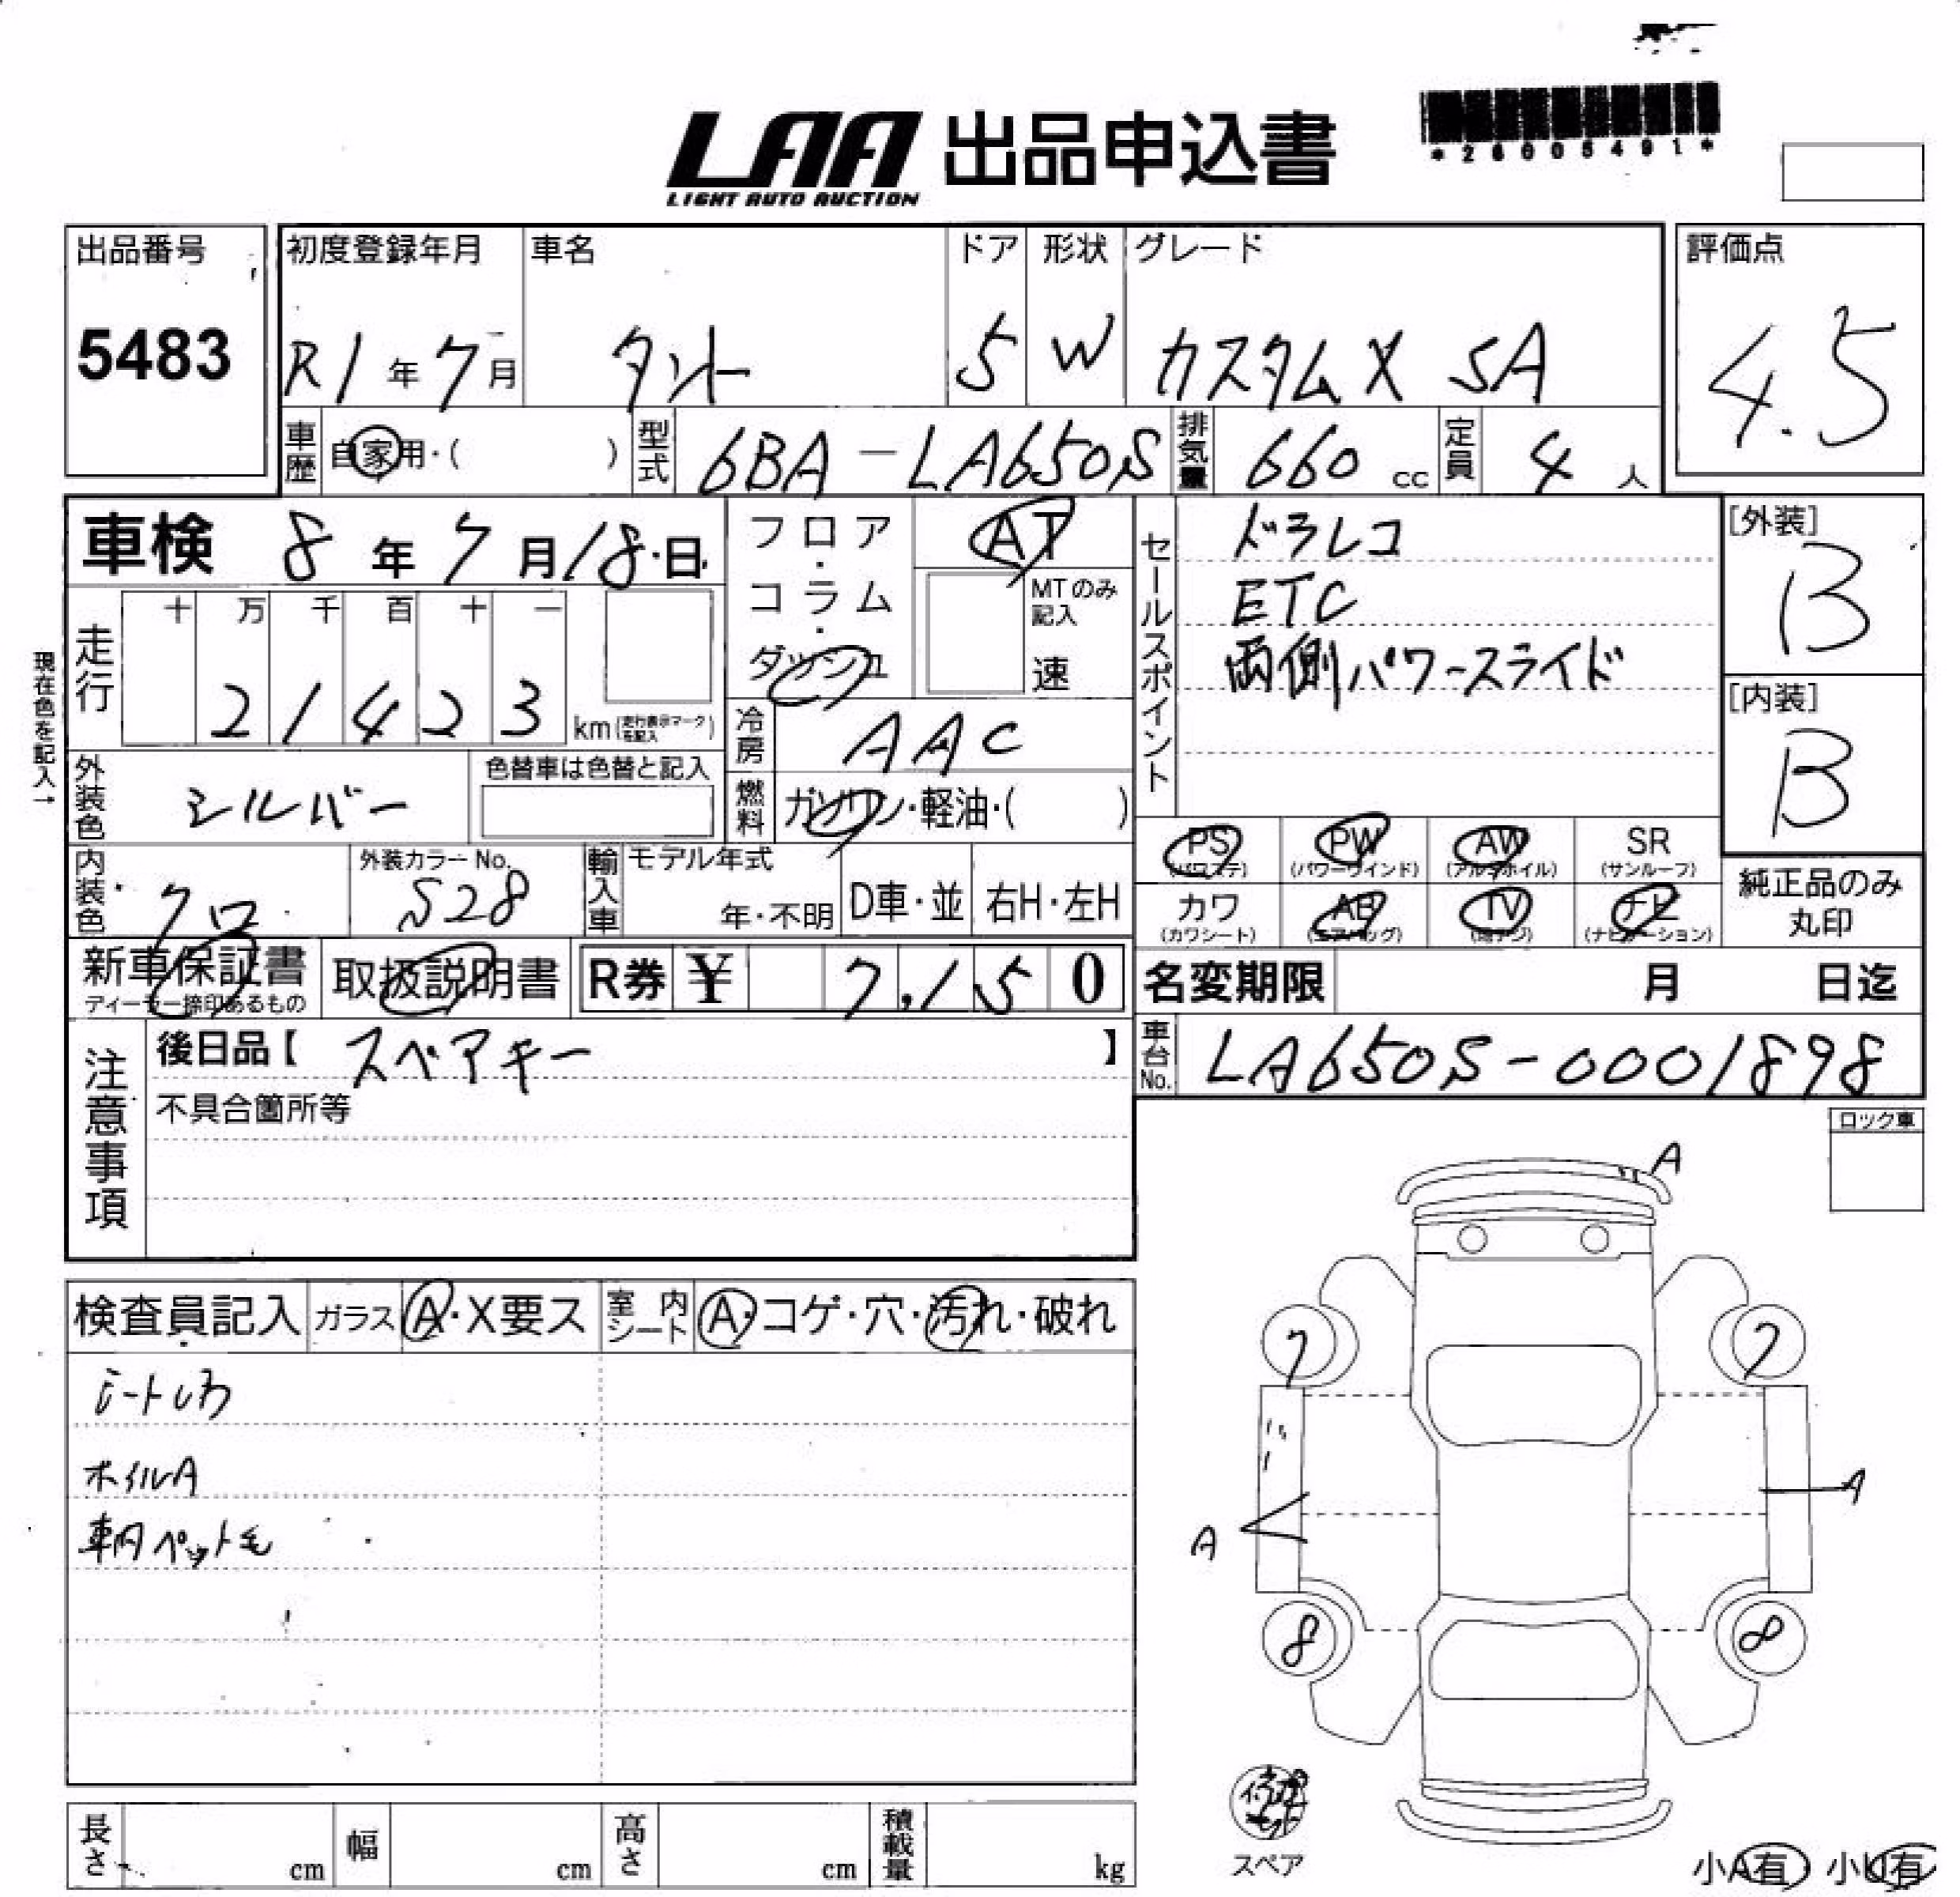 LAA 出品申込書
LIGHT AUTO AUCTION
*26005491*
出品番号
5483
初度登録年月 車名 ドア 形状 グレード
R1年7月 タント 5 W カスタムX SA
評価点
4.5
車歴 自家用・( ) 型式 6BA-LA650S 排気量 660 cc 定員 4人
車検 8年7月18日
フロア・コラム・ダッシュ
AT
MTのみ記入
速
現在色を記入→
走行 十 万 千 百 十 一
21423 km(走行表示マークを記入)
冷房 AAC
外装色 シルバー 色替車は色替と記入
燃料 ガソリン・軽油・( )
内装色 クロ 外装カラーNo. S28
輸入車 モデル年式 年・不明 D車・並 右H・左H
セールスポイント
ドラレコ
ETC
両側パワースライド
[外装]
B
[内装]
B
PS PW AW SR
(パワステ) (パワーウインド) (アルミホイル) (サンルーフ)
カワ AB TV ナビ
(カワシート) (エアバッグ) (地デジ) (ナビゲーション)
純正品のみ
丸印
新車保証書
ディーラー捺印あるもの
取扱説明書
R券 ¥ 7,150
名変期限 月 日迄
車台No. LA650S-0001898
注意事項
後日品【 スペアキー 】
不具合箇所等
ロック車
検査員記入 ガラス A・X要ス 室内シート A・コゲ・穴・汚れ・破れ
シートしわ
ホイルA
車内ペット毛
A
7 7
A A
8 8
スペア
小A有 小U有
長さ cm 幅 cm 高さ cm 積載量 kg